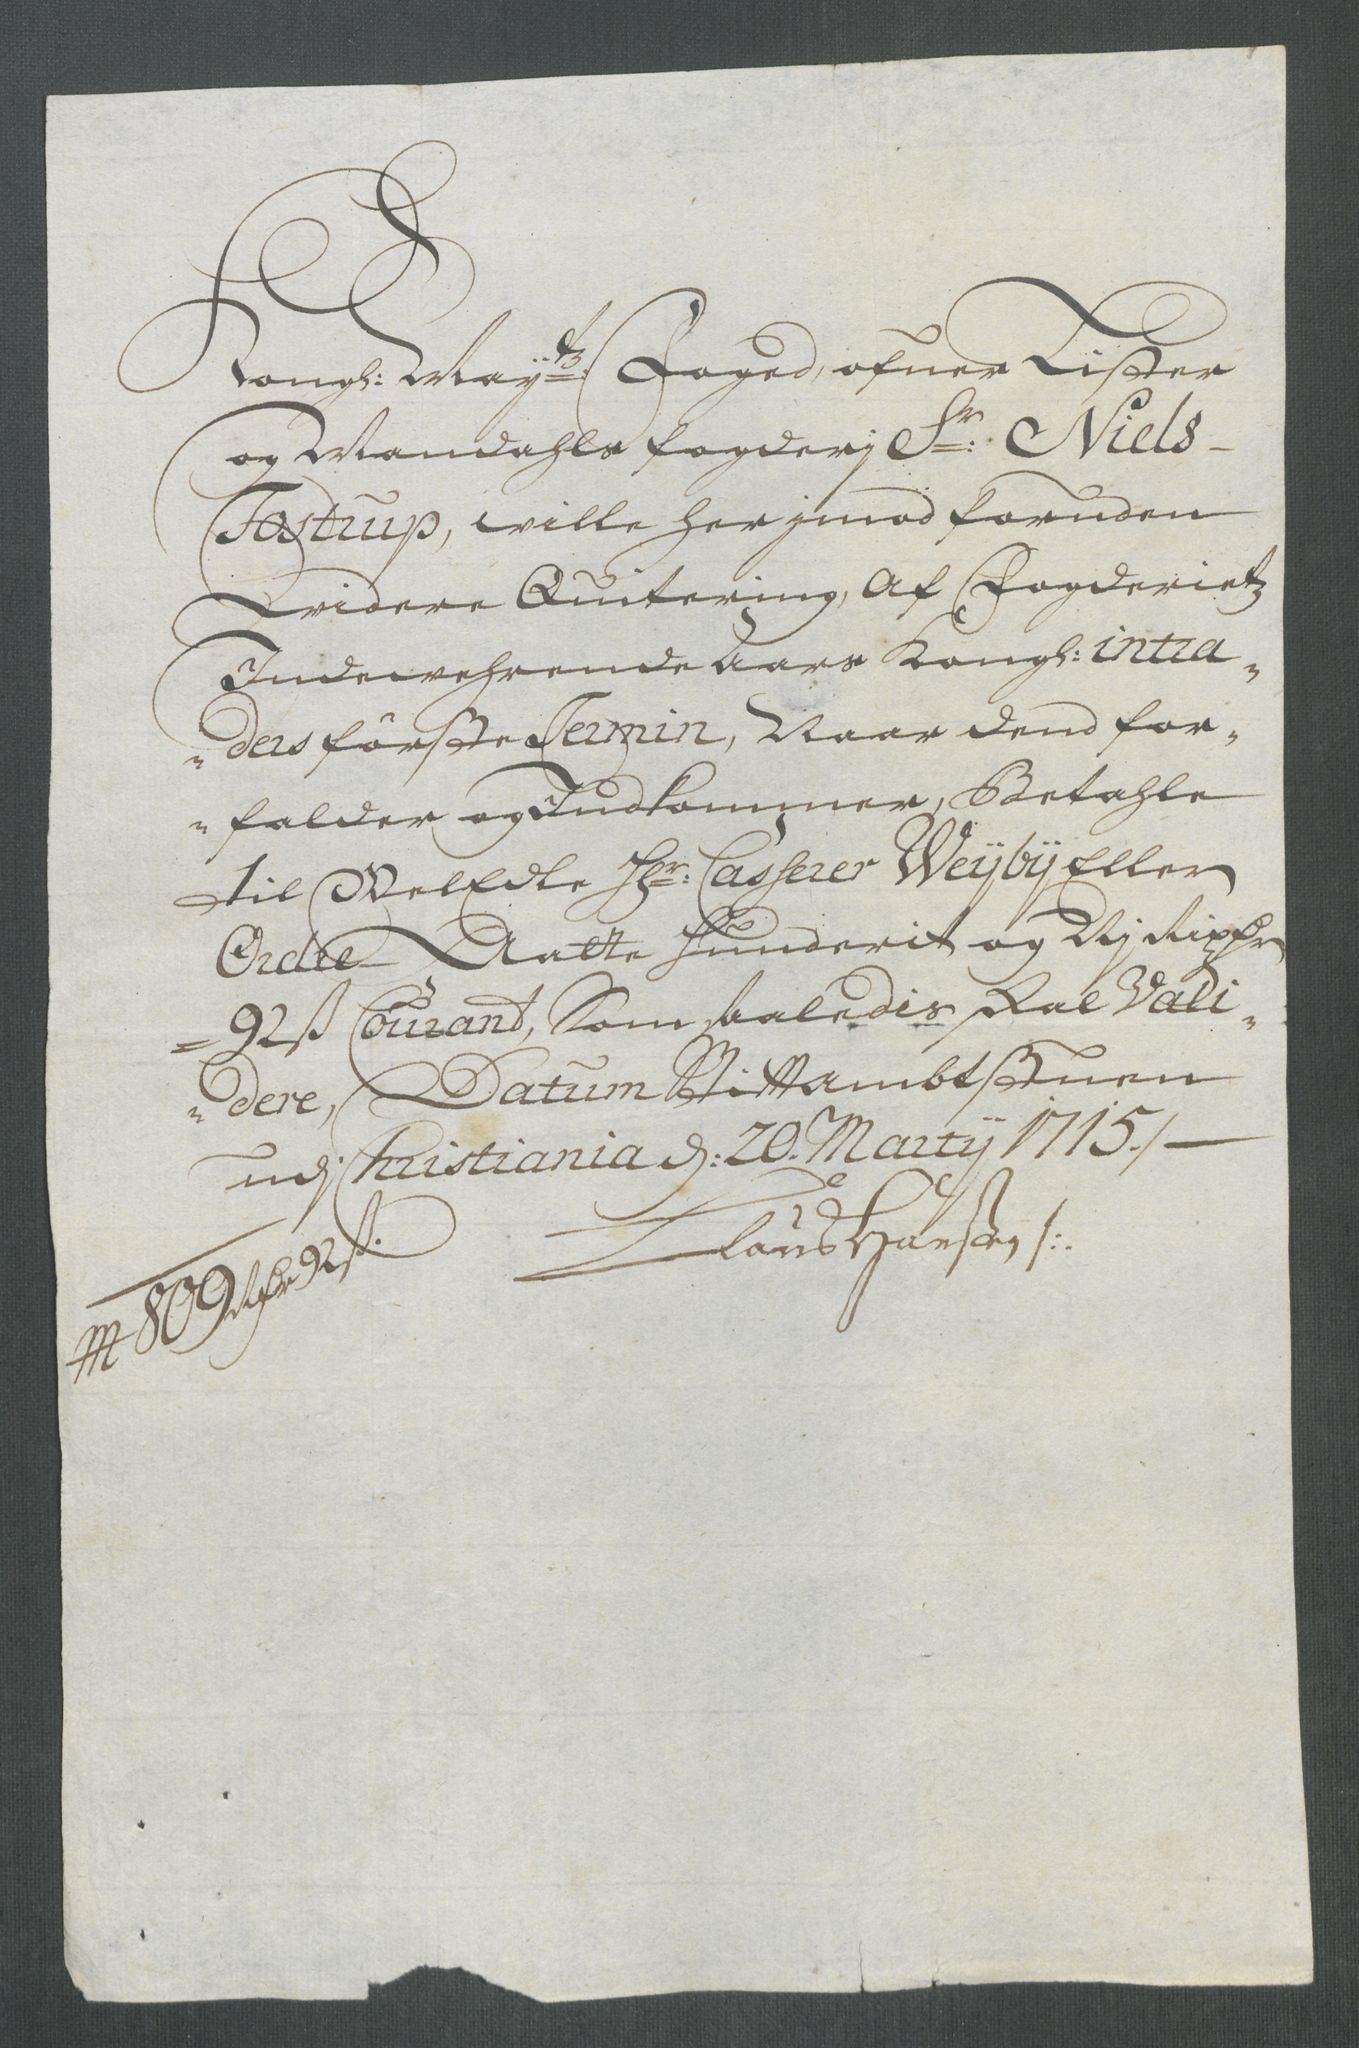 Kongl: Mayts: Foged, ofuer Lister
og Mandahls fogderj Sr: Niels
Tostrup, wille her jmod foruden
widere Quitering, Af Fogderietz
Indewehrende Aars Kongl: intra„
„ders förste Termin, Naar dend for„
„falder og Indkommer, Betahle
til WelEdle Hr: Casserer Weÿbÿ Eller
Ordre Aatte Hunderit og Nj Rixdr
92 ß Courant, Som saaledis skal Vali„
„dere, Datum Stiftambtstuen
udj Christiania d: 20. Martij 1715./
Claus Hansen /:.
809 Rdr 92 ß.